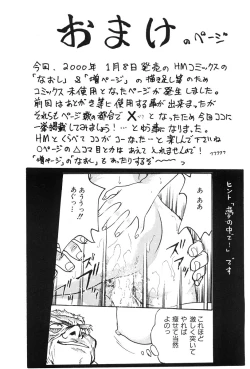 おまけのページ
今回、2000年 1月8日発売の HMコミックスの
「なおし」&「増ページ」の 描き足し等のため
コミックス未使用となったページが発生しました。
前回はあとがき等に使用する事が出来ましたが
それらもページ数の都合で ×…となったため今回ココに
一挙掲載してみましょう!…と相成りました。
HMとくらべてココがこーなったーと楽しんで下さいね
○ページの△コマ目とかは あえて入れませんので!
"増ページ"の"なおし"とあったりするぞ〜〜〜っ
ヒント「夢の中で!」です
ああ
あうぅっ!!
あぐっ…
これほど
激しく突いて
やれば
痩せて当然
よのっ